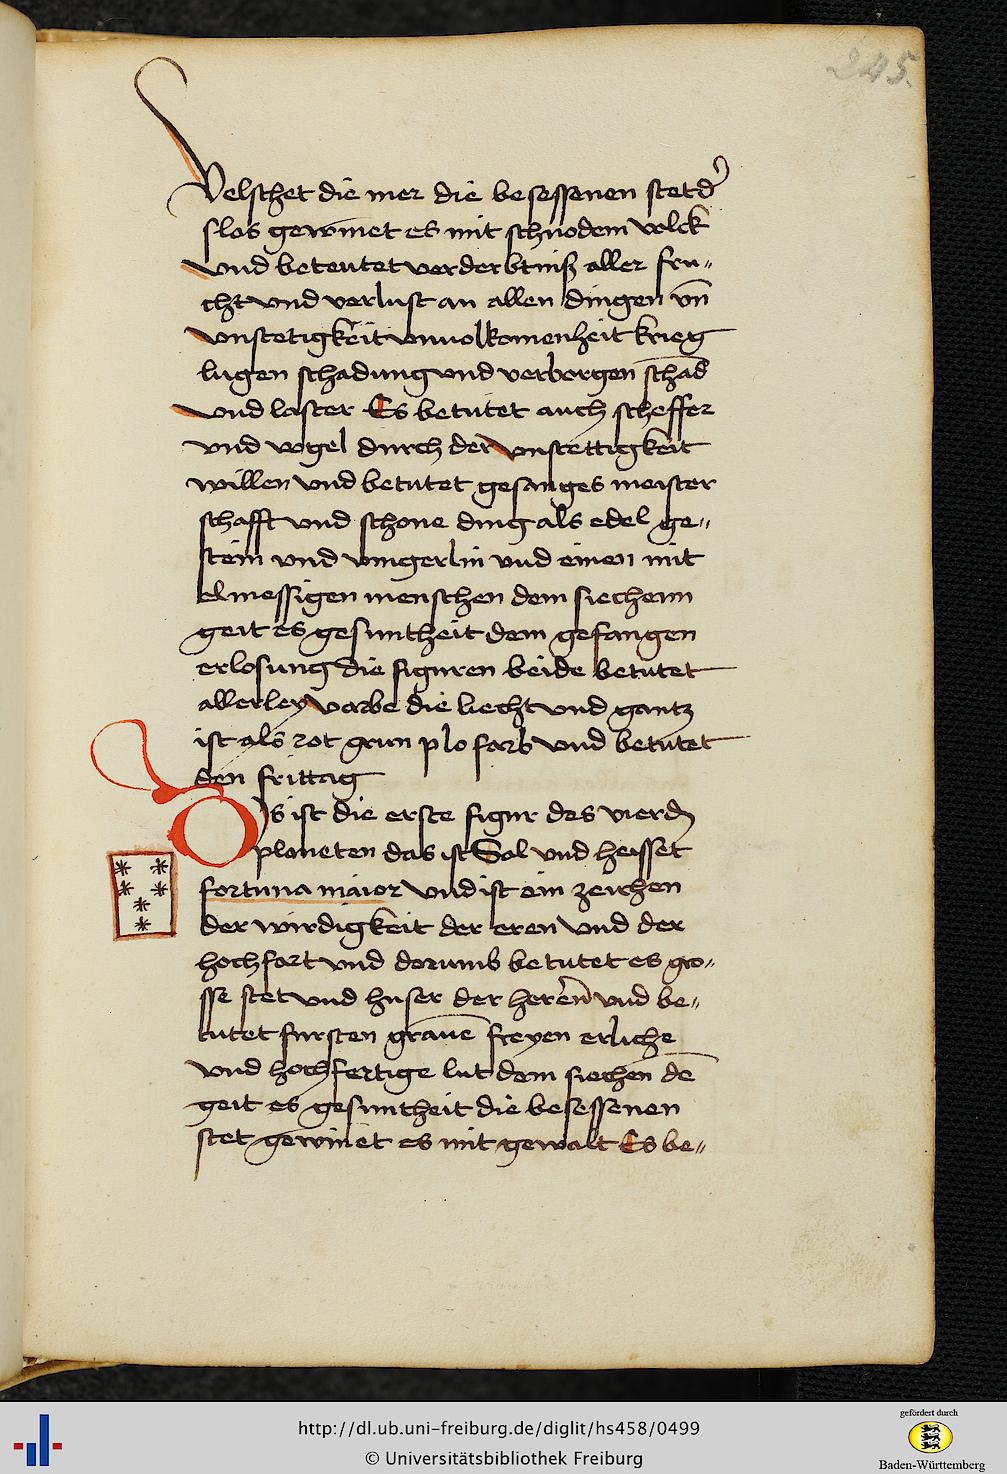 245.
Velschet die mer die besessenen stet d'
slos gewinet es mit schnodem volck
vnd beteutet verderbtniß aller fru„
cht vnd verlust an allen dingen vn̄
vnstetigkeit vnuolkomenheit krieg
lugen schadung vnd verborgen schad
vnd laster Es betutet auch scheffer
vnd vogel durch der vnstettigkeit
willen vnd betutet gesanges meister
schafft vnd schone ding als edel ge„
stein vnd vingerlin vnd einen mit
elmessigen menschen dem siechenn
geit es gesuntheit dem gefangen
erlosung die figuren beide betutet
allerley varbe die liecht vnd gantz
ist als rot grun plo farb vnd betutet
den frittag
Ds ist die erste figur des vierdn
planeten das ist Sol vnd heisset
fortuna maior vnd ist ein zeichen
der wirdigkeit der eren vnd der
hochfart vnd dorumb betutet es gro„
sse stet vnd huser der herēn vnd be„
tutet fursten graue freyen erliche
vnd hochfertige lut dem siechen dē
geit es gesuntheit die besessenen
stet gewinet es mit gewalt Es be„
http://dl.ub.uni-freiburg.de/diglit/hs458/0499
© Universitätsbibliothek Freiburg
gefördert durch
Baden-Württemberg